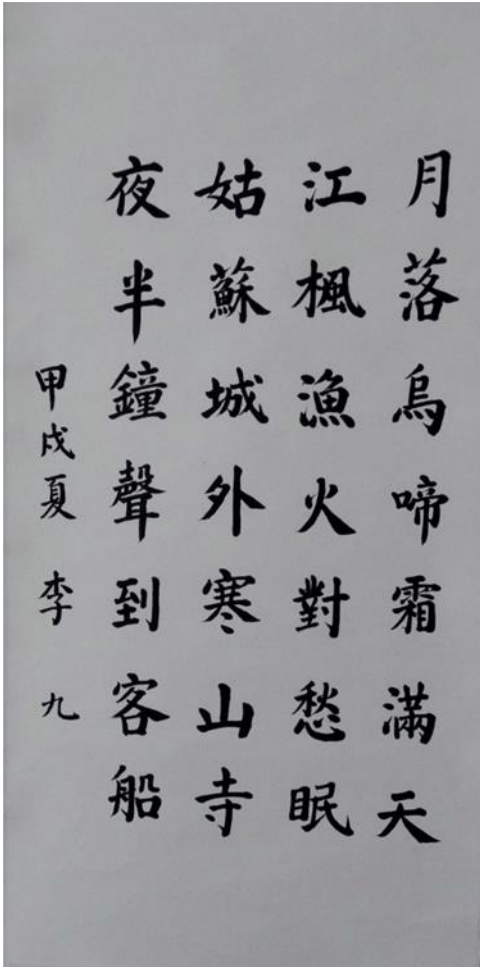 月落烏啼霜滿天
江楓漁火對愁眠
姑蘇城外寒山寺
夜半鐘聲到客船
甲戌夏 李九